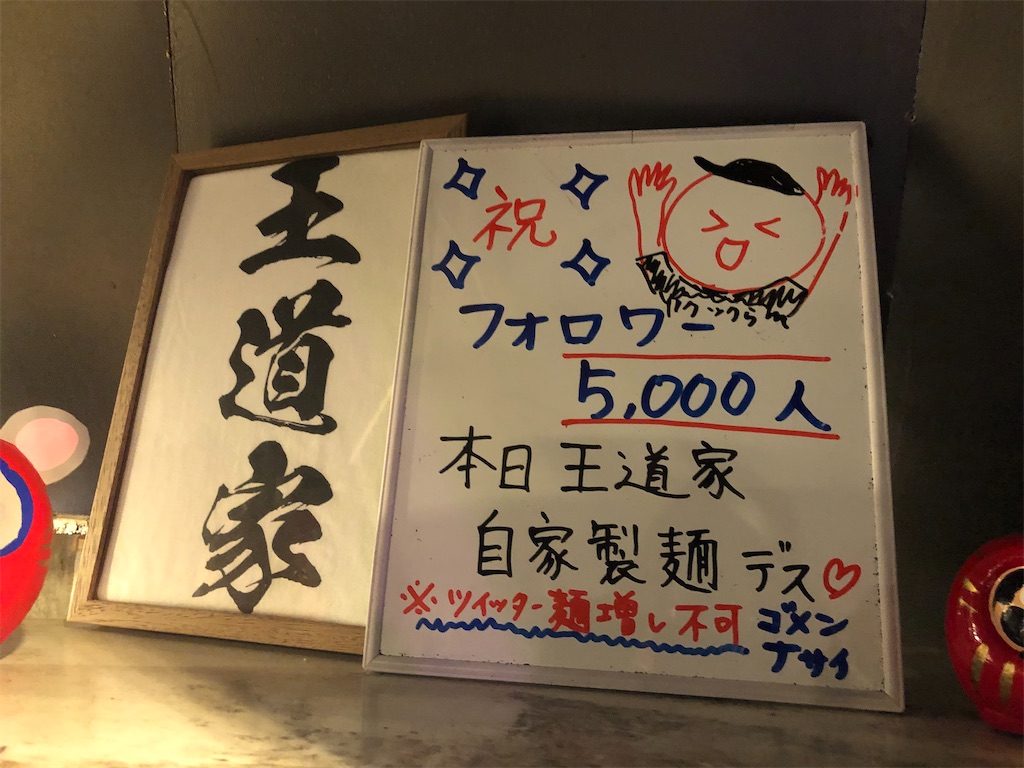 王道家
祝
フォロワー
5,000人
本日 王道家
自家製麺 デス
※ツイッター麺増し不可 ゴメン
ナサイ